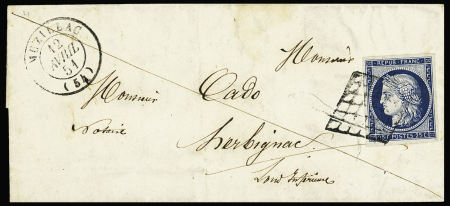 MUZILLAC
12
AVRIL
51
(54)
REPUB. FRANC.
25 POSTES 25 C
Monsieur
Monsieur Cado
Notaire
herbignac
Loire Inférieure